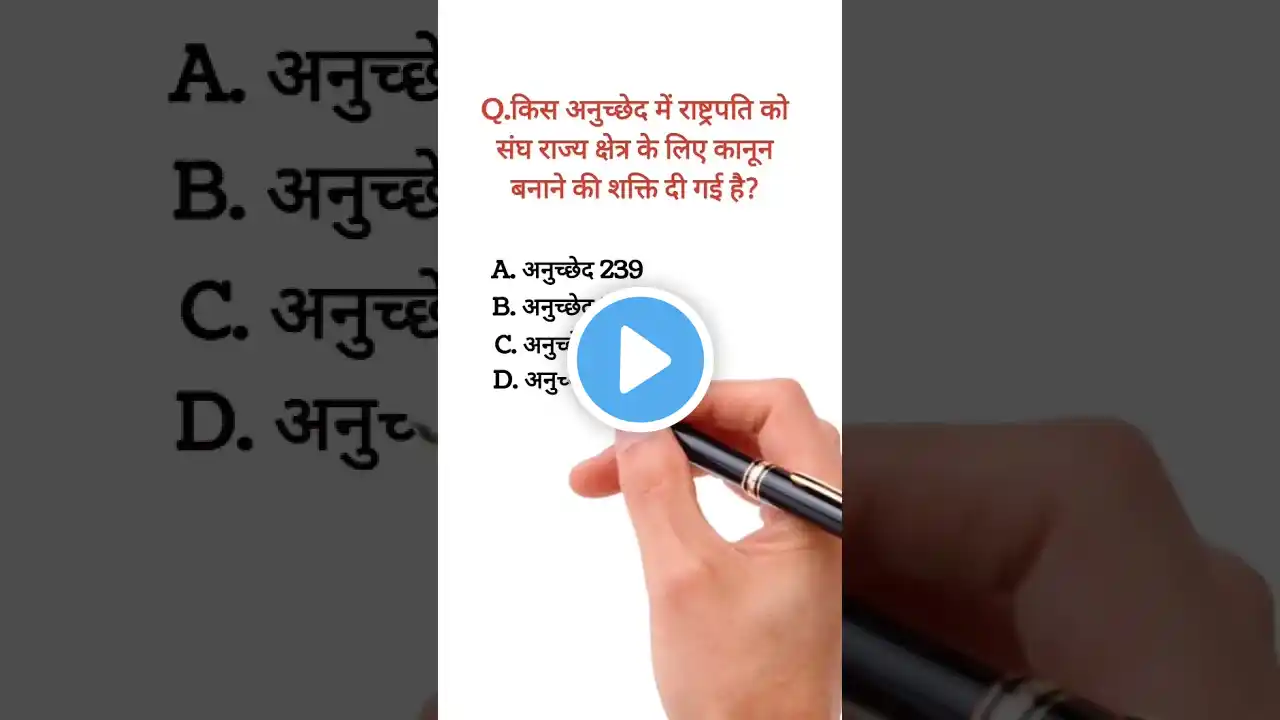 Q.किस अनुच्छेद में राष्ट्रपति को
संघ राज्य क्षेत्र के लिए कानून
बनाने की शक्ति दी गई है?
A. अनुच्छेद 239
B. अनुच्छेद
C.
D.
A.
B.
C.
D.